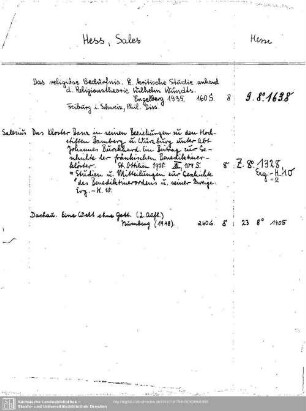 Hess, Sales
Hesse
Das religiöse Bedürfnis. E. kritische Studie anhand
d. Religionstheorie Wilhelm Wundts.
Engelberg 1935. 160 S. 8 9. 8° 1638
Freiburg i. Schweiz, Phil. Diss.
Salesius Das Kloster Banz in seinen Beziehungen zu den Hoch-
stiften Bamberg u. Würzburg unter Abt
Johannes Burckhard. Ein Beitrag zur Ge-
schichte der fränkischen Benediktiner-
klöster. St. Ottilien 8° Z. 8° 1328
= Studien u. Mitteilungen zur Geschichte Erg.-H. 10
des Benediktinerordens u. seiner Zweige.
Erg.-H. 10
Dachau. Eine Welt ohne Gott. (2. Aufl.)
Nürnberg (1948). 240 S. 8 23 8° 1405